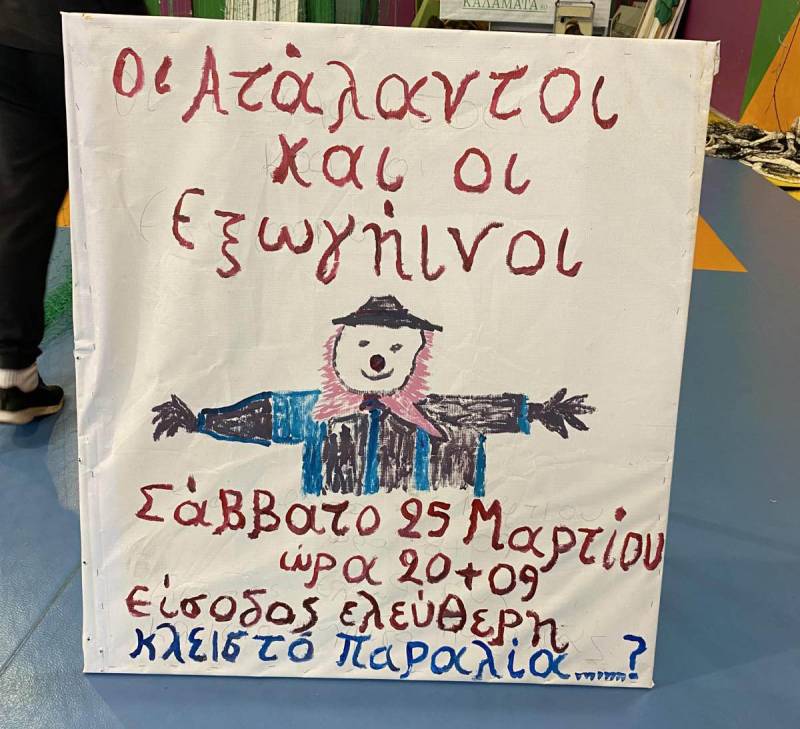 ΚΑΛΑΜΑΤΑ
οι Ατάλαντοι
και οι
εξωγήινοι
Σάββατο 25 Μαρτίου
ώρα 20+09
είσοδος ελεύθερη
κλειστό παραλία......?